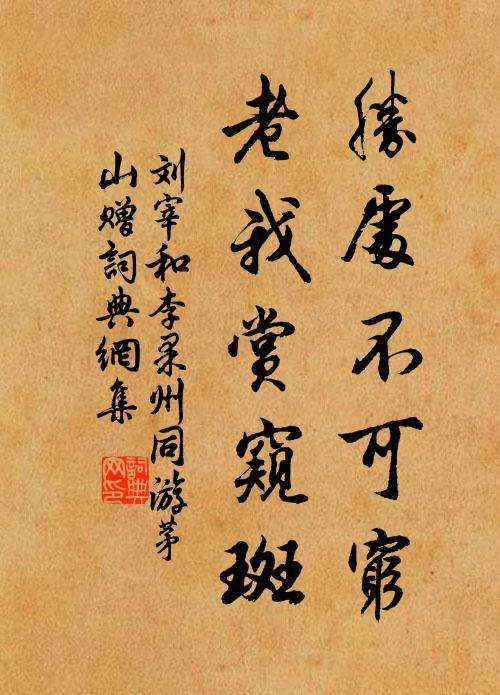 勝處不可窮
老我賞窺斑
刘宰和李果州同游茅
山赠詞典網集
詞典
网印